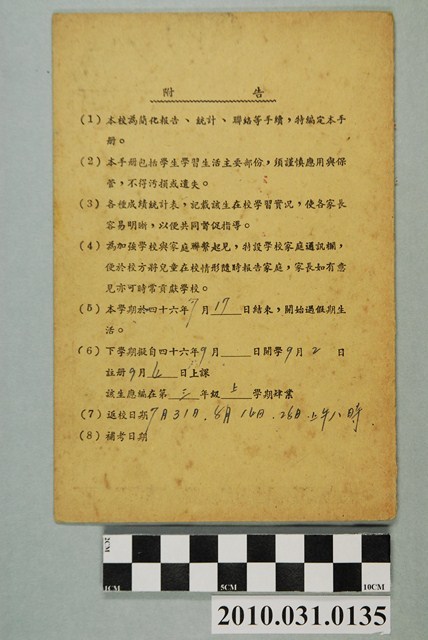 附　　告
(1) 本校為簡化報告、統計、聯絡等手續，特編定本手
冊。
(2) 本手冊包括學生學習生活主要部份，須謹慎應用與保
管，不得污損或遺失。
(3) 各種成績統計表，記載該生在校學習實況，使各家長
容易明晰，以便共同督促指導。
(4) 為加強學校與家庭聯繫起見，特設學校家庭通訊欄，
便於校方將兒童在校情形隨時報告家庭，家長如有意
見亦可時常貢獻學校。
(5) 本學期於四十六年7月17日結束，開始過假期生
活。
(6) 下學期擬自四十六年9月　日開學9月2日
註冊9月4日上課
該生應編在第三年級上學期肄業
(7) 返校日期7月31日．8月16日．26日上午八時
(8) 補考日期
2CM
1CM
5CM
10CM
2010.031.0135